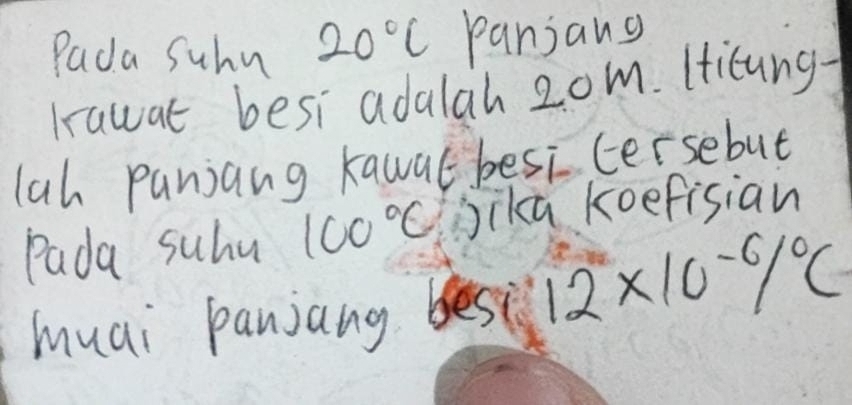 Pada suhu 20°C panjang
kawat besi adalah 20 m. Hitung-
lah panjang kawat besi tersebut
pada suhu 100°C jika koefisian
muai panjang besi 12 x 10⁻⁶/°C